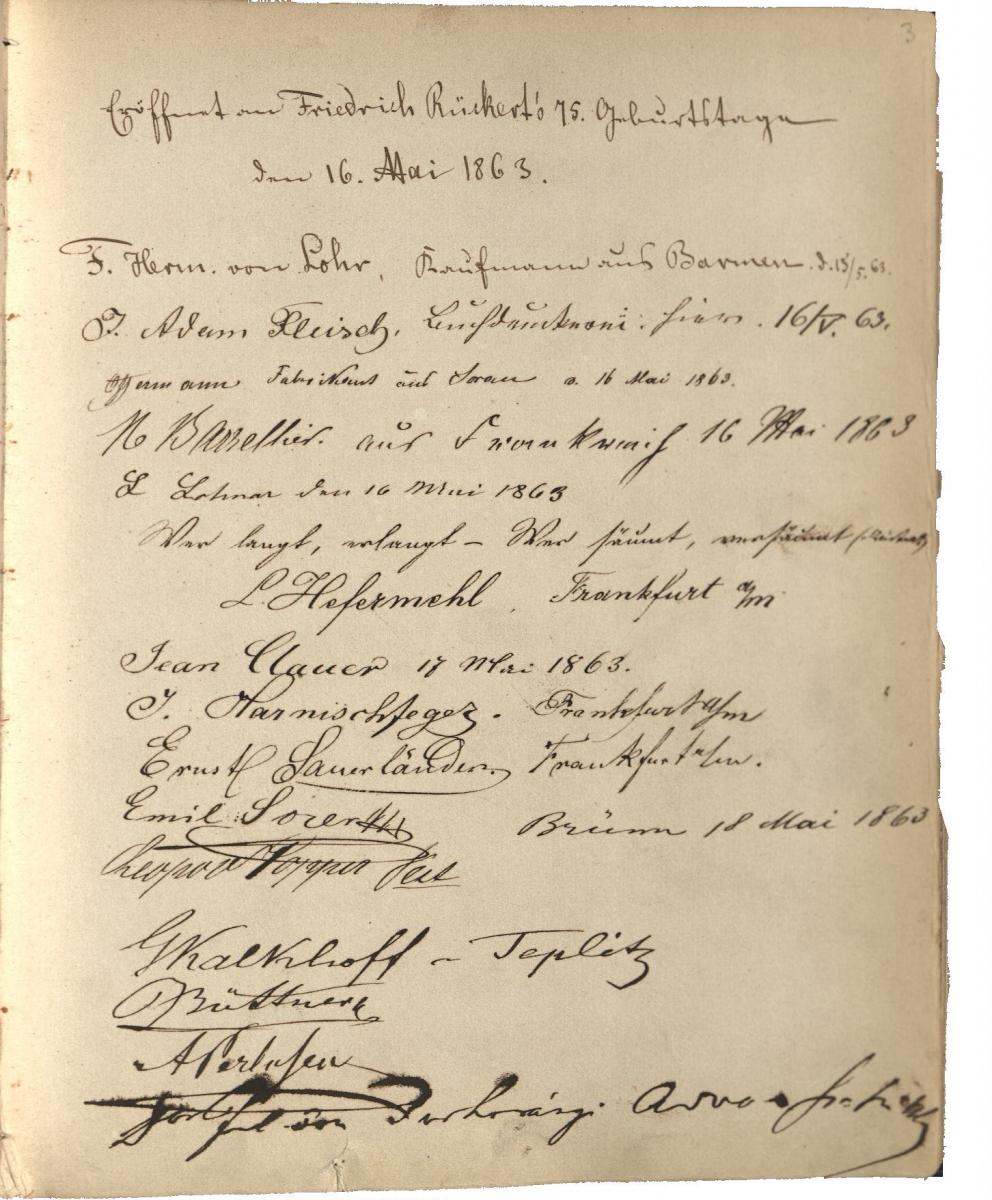 3
Eröffnet an Friedrich Rückert's 75. Geburtstage
den 16. Mai 1863.
F. Herm. von Lohr, Kaufmann aus Barmen. d. 15/5. 63.
J. Adam Fleisch, Buchdruckerei hier. 16/V. 63.
Hermann Fabrikant aus Sorau d. 16 Mai 1863.
aus Frankreich 16 Mai 1863
den 16 Mai 1863
Wer langt, erlangt – Wer säumt, versäumt
L. Hefermehl, Frankfurt a/m
Jean Clauer 17 Mai 1863.
J. Harnischfeger. Frankfurt a/m
Ernst Sauerländer. Frankfurt a/m.
Emil Brünn 18 Mai 1863
Leopold Popper Pest
GKalkhoff – Teplitz
Büttner
von